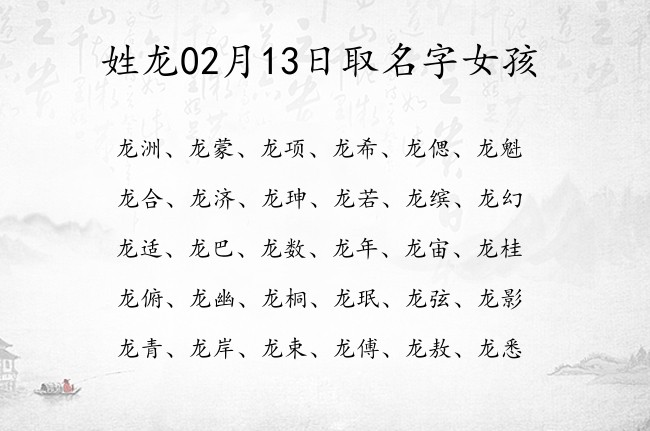 姓龙02月13日取名字女孩
龙洲、龙蒙、龙项、龙希、龙偲、龙魁
龙合、龙济、龙珅、龙若、龙缤、龙幻
龙适、龙巴、龙数、龙年、龙宙、龙桂
龙俯、龙幽、龙桐、龙珉、龙弦、龙影
龙青、龙岸、龙束、龙傅、龙敖、龙悉